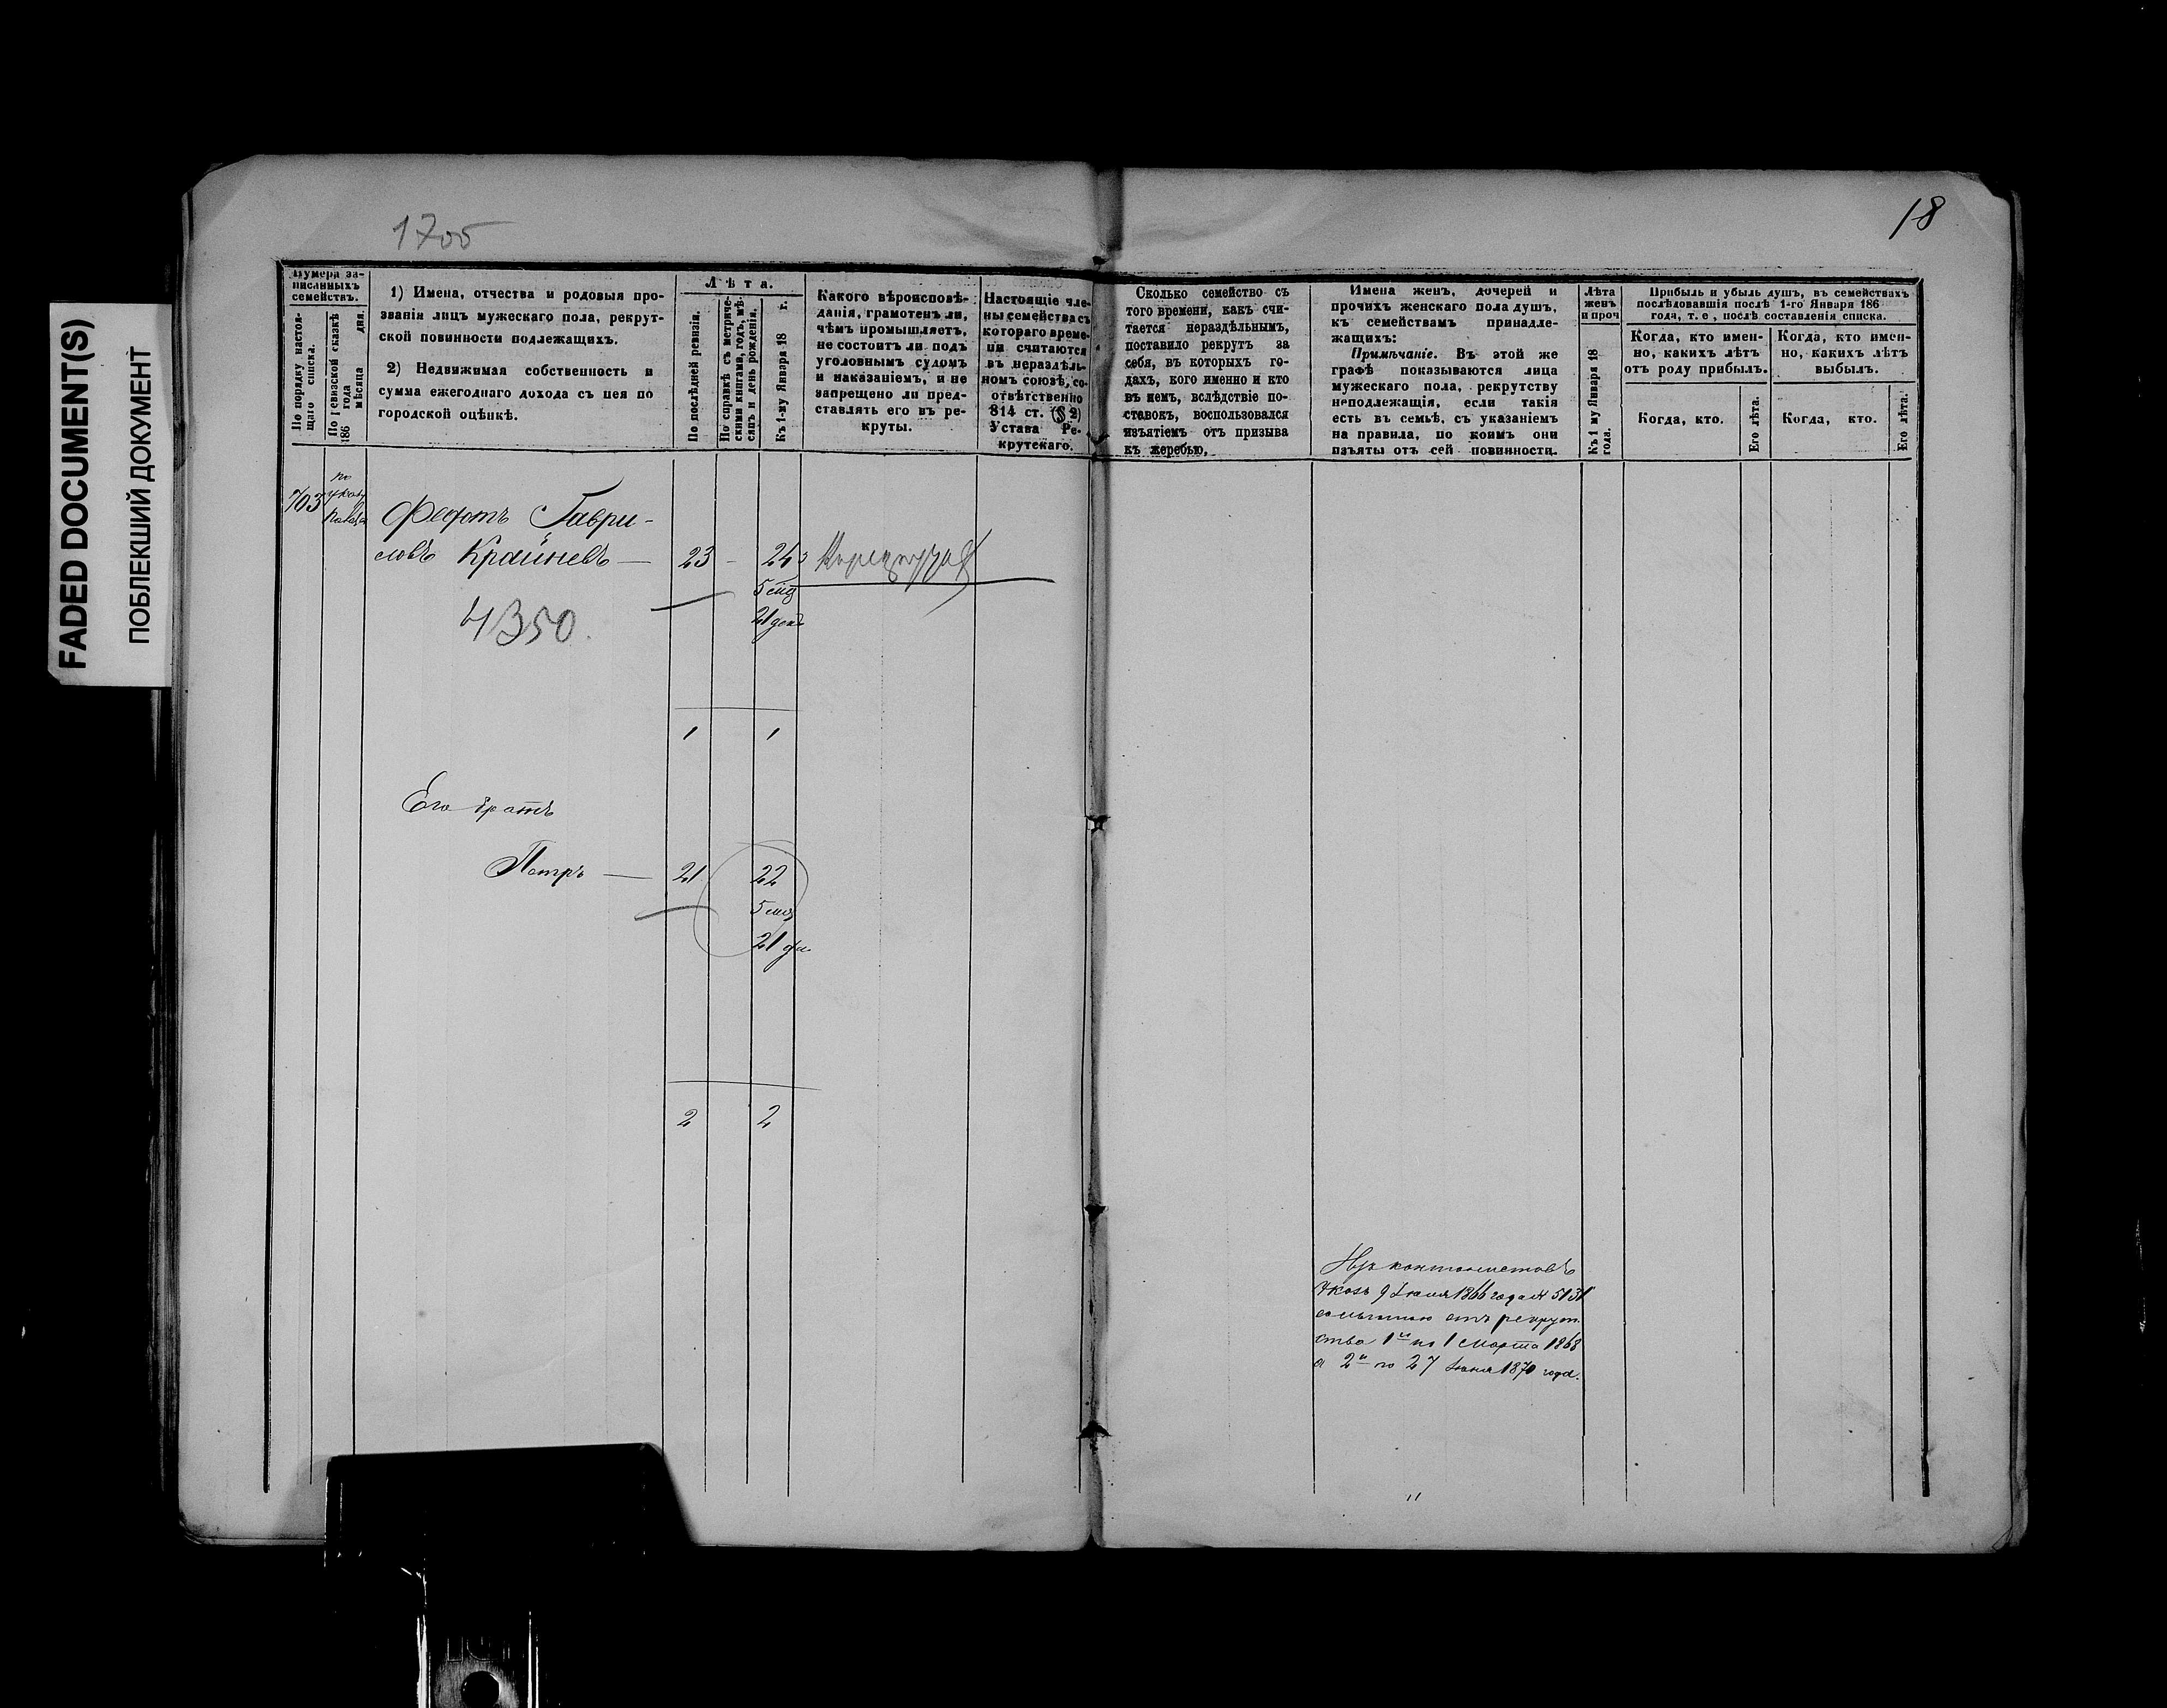 FADED DOCUMENT(S)
ПОБЛЕКШИЙ ДОКУМЕНТ
1705
18
Нумера за-
писанныхъ
семействъ.
По порядку настоя-
щаго списка.
По ревизской сказкѣ
186 года
мѣсяца дня.
1) Имена, отчества и родовыя про-
званія лицъ мужескаго пола, рекрут-
ской повинности подлежащихъ.
2) Недвижимая собственность и
сумма ежегоднаго дохода съ нея по
городской оцѣнкѣ.
Лѣта.
По послѣдней ревизіи.
По справкѣ съ метриче-
скими книгами, годъ, мѣ-
сяцъ и день рожденія.
Къ 1-му Января 18 г.
Какого вѣроисповѣ-
данія, грамотенъ ли,
чѣмъ промышляетъ,
не состоитъ ли подъ
уголовнымъ судомъ
и наказаніемъ, и не
запрещено ли пред-
ставлять его въ ре-
круты.
Настоящіе чле-
ны семейства съ
котораго време-
ни считаются
въ нераздѣль-
номъ союзѣ, со-
отвѣтственно
814 ст. (§ 2)
Устава Ре-
крутскаго.
Сколько семейство съ
того времени, какъ счи-
тается нераздѣльнымъ,
поставило рекрутъ за
себя, въ которыхъ го-
дахъ, кого именно и кто
въ немъ, вслѣдствіе по-
ставокъ, воспользовался
изъятіемъ отъ призыва
къ жеребью.
Имена женъ, дочерей и
прочихъ женскаго пола душъ,
къ семействамъ принадле-
жащихъ:
Примѣчаніе. Въ этой же
графѣ показываются лица
мужескаго пола, рекрутству
неподлежащія, если такія
есть въ семьѣ, съ указаніемъ
на правила, по коимъ они
изъяты отъ сей повинности.
Лѣта
женъ
и проч
Къ 1 му Января 18
года.
Прибыль и убыль душъ, въ семействахъ
послѣдовавшія послѣ 1-го Января 186
года, т. е., послѣ составленія списка.
Когда, кто имен-
но, какихъ лѣтъ
отъ роду прибылъ.
Когда, кто имен-
но, какихъ лѣтъ
выбылъ.
Когда, кто.
Его лѣта.
Когда, кто.
Его лѣта.
703
по
указу
Федотъ Гаври-
ловъ Крайневъ — 23 - 24
5 мѣс
21 дня
4350.
1 1
Его братъ
Петръ — 21 22
5 мѣс
21 дн.
2 2
Изъ кантонистовъ
Указъ 9 Іюля 1866 года № 5131
отъ рекрут
ства 1й по 1 Марта 1868
а 2й по 27 Іюня 1870 года.